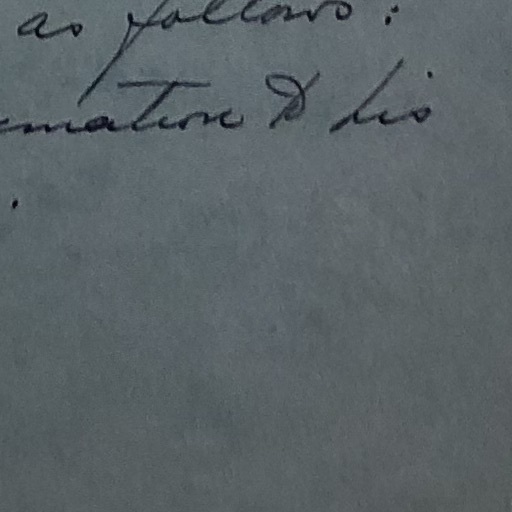 as follows:
mation & his
.